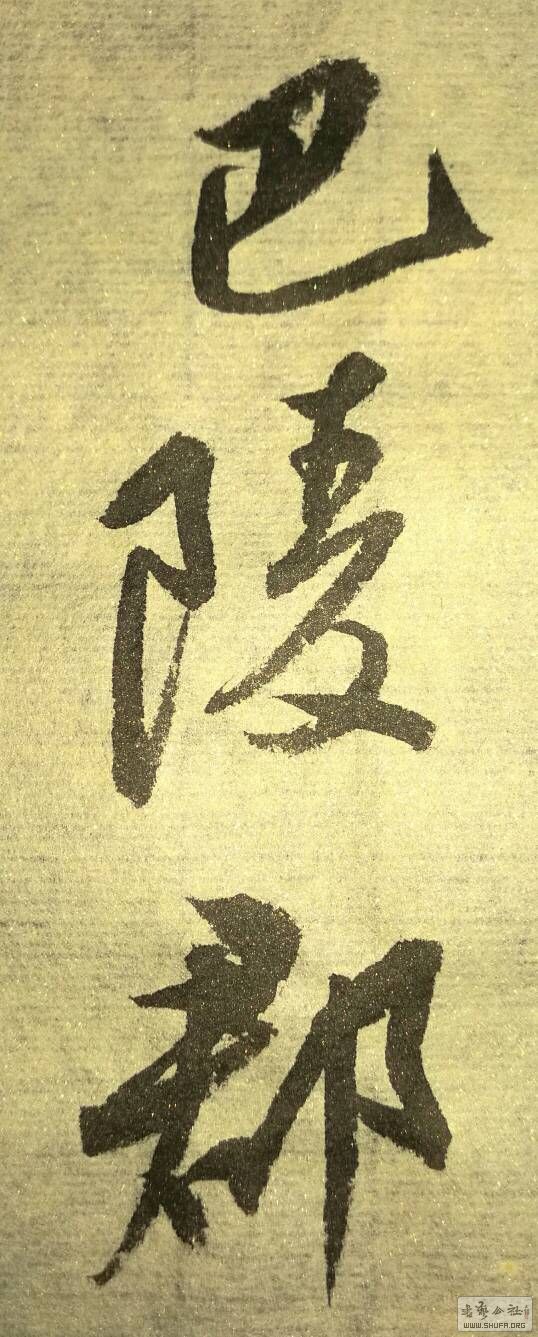 巴陵郡
书艺公社
WWW.SHUFA.ORG